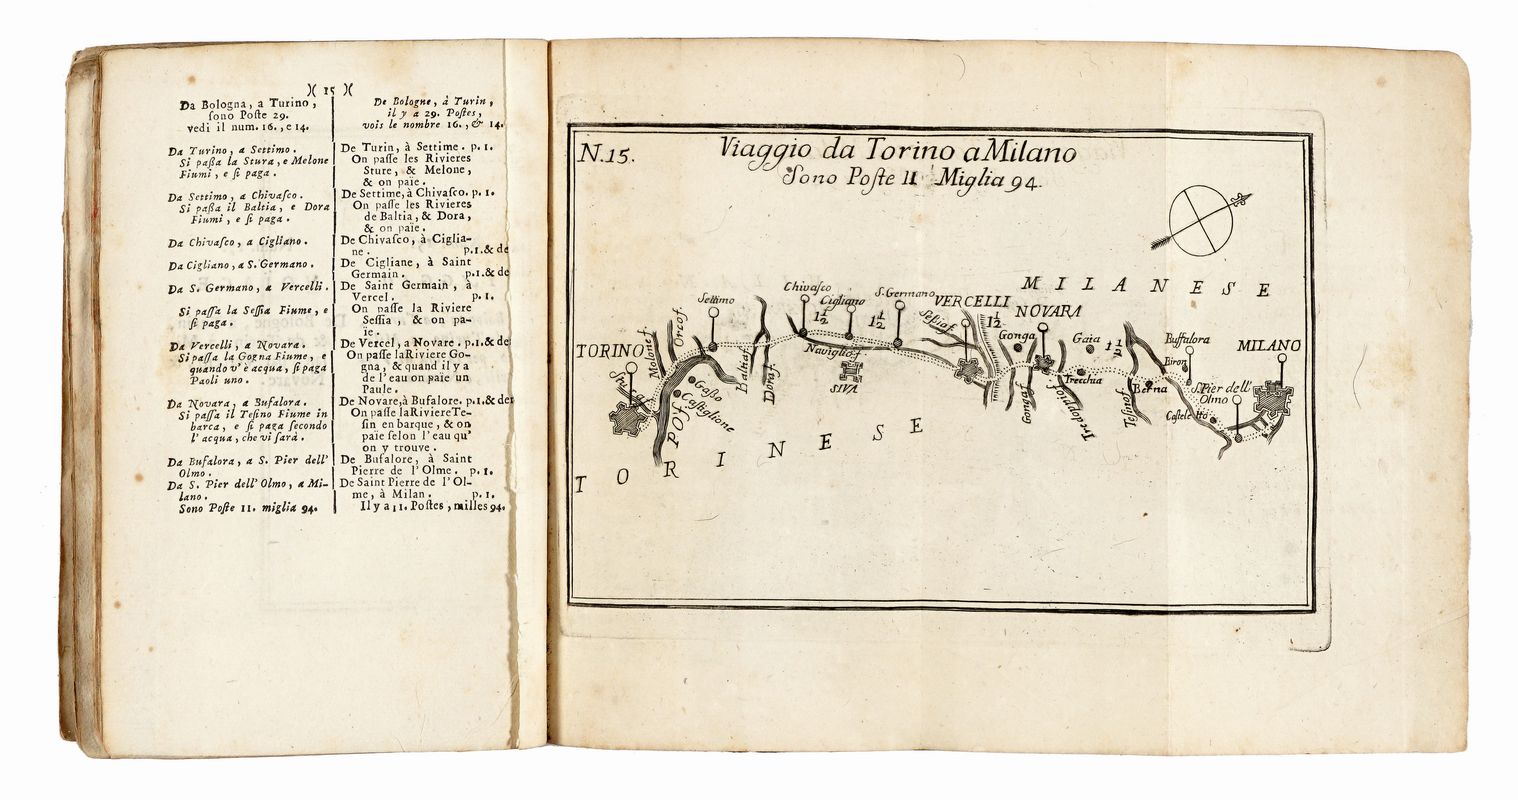 )( 15 )(
Da Bologna, a Turino,
ſono Poſte 29.
vedi il num. 16., e 14.
Da Turino, a Settimo.
Si paßa la Stura, e Melone
Fiumi, e ſi paga.
Da Settimo, a Chivaſco.
Si paßa il Baltia, e Dora
Fiumi, e ſi paga.
Da Chivaſco, a Cigliano.
Da Cigliano, a S. Germano.
Da S. Germano, a Vercelli.
Si paſſa la Seſſia Fiume, e
ſi paga.
Da Vercelli, a Novara.
Si paſſa la Gogna Fiume, e
quando v'è acqua, ſi paga
Paoli uno.
Da Novara, a Bufalora.
Si paſſa il Teſino Fiume in
barca, e ſi paga ſecondo
l'acqua, che vi ſarà.
Da Bufalora, a S. Pier dell'
Olmo.
Da S. Pier dell'Olmo, a Mi-
lano.
Sono Poſte 11. miglia 94.
De Bologne, à Turin,
il y a 29. Poſtes,
vois le nombre 16., & 14.
De Turin, à Settime. p. 1.
On paſſe les Rivieres
Sture, & Melone,
& on paie.
De Settime, à Chivaſco. p. 1.
On paſſe les Rivieres
de Baltia, & Dora,
& on paie.
De Chivaſco, à Ciglia-
ne. p.1.& de
De Cigliane, à Saint
Germain. p.1.& de
De Saint Germain, à
Vercel. p. 1.
On paſſe la Riviere
Seſſia, & on pa-
ïe.
De Vercel, a Novare. p.1.& de
On paſſe laRiviere Go-
gna, & quand il y a
de l'eau on païe un
Paule.
De Novare, à Bufalore. p.1.& de
On paſſe laRiviere Te-
ſin en barque, & on
païe ſelon l'eau qu'
on y trouve.
De Bufalore, à Saint
Pierre de l'Olme. p. 1.
De Saint Pierre de l'Ol-
me, à Milan. p. 1.
Il y a 11. Poſtes, milles 94.
N.15.
Viaggio da Torino a Milano
Sono Poſte 11 Miglia 94.
MILANESE
TORINO
Molone f.
Orco f.
Settimo
Gaßo
Caſtiglione
PO f.
Baltia f.
Dora f.
Chivaſco
1½
Cigliano
1½
S. Germano
Naviglio f.
SIVA
Seſia f.
VERCELLI
1½
NOVARA
Gonga
Gonga f.
Gaia
1½
Trecchia
Berna
Buffalora
Biron
S. Pier dell'
Olmo
Caſteletto
MILANO
TORINESE